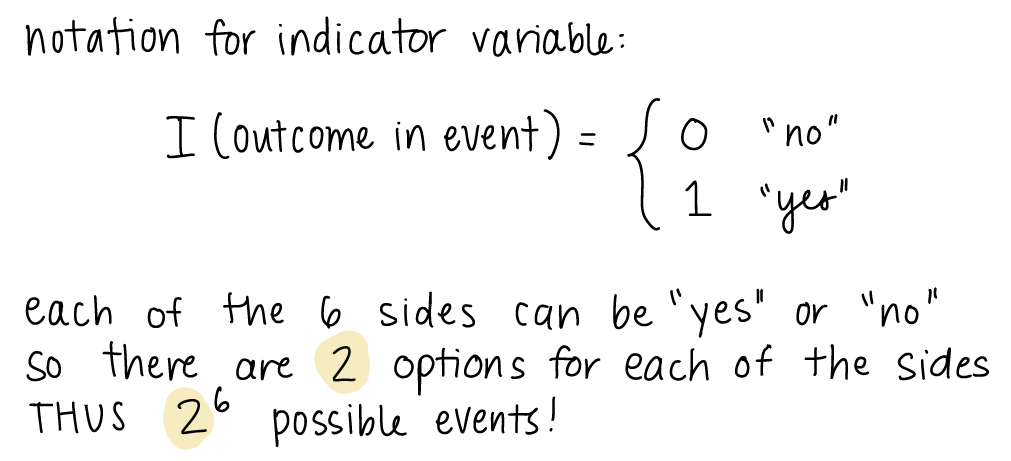 notation for indicator variable:
I (outcome in event) = { 0 "no"
1 "yes"
each of the 6 sides can be "yes" or "no"
so there are 2 options for each of the sides
THUS 2⁶ possible events!